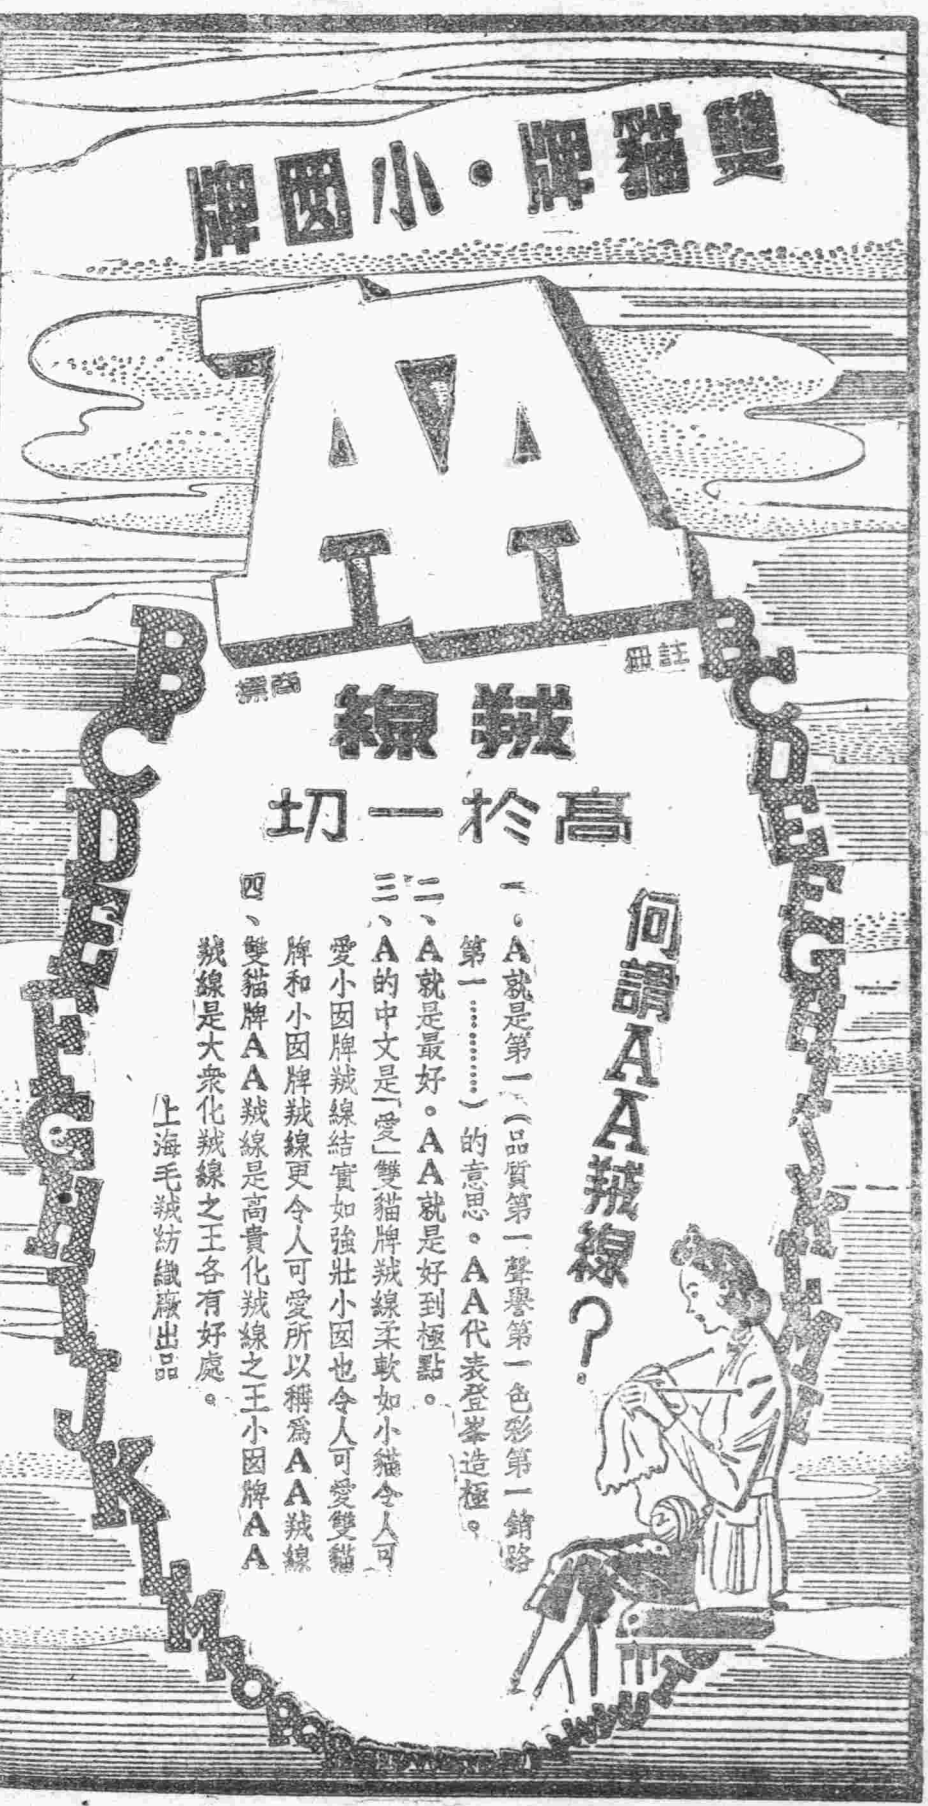 雙貓牌・小囡牌
AA
註冊
商標
羢線
高於一切
何謂AA羢線？
一、A就是第一（品質第一聲譽第一色彩第一銷路
第一…………）的意思。AA代表登峯造極。
二、A就是最好。AA就是好到極點。
三、A的中文是「愛」雙貓牌羢線柔軟如小貓令人可
愛小囡牌羢線結實如強壯小囡也令人可愛雙貓
牌和小囡牌羢線更令人可愛所以稱爲AA羢線
四、雙貓牌AA羢線是高貴化羢線之王小囡牌AA
羢線是大衆化羢線之王各有好處。
上海毛羢紡織廠出品
BCDEFGHIJKLM
BCDEFGHIJKLMNOPQ